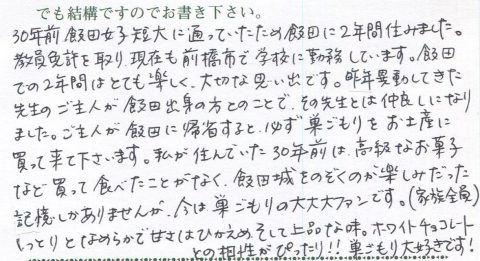 でも結構ですのでお書き下さい。
30年前飯田女子短大に通っていたため飯田に2年間住みました。
教員免許を取り、現在も前橋市で学校に勤務しています。飯田
での2年間はとても楽しく、大切な思い出です。昨年異動してきた
先生のご主人が飯田出身の方とのことで、その先生とは仲良しになり
ました。ご主人が飯田に帰省すると、必ず巣ごもりをお土産に
買って来て下さいます。私が住んでいた30年前は、高級なお菓子
など買って食べたことがなく、飯田城をのぞくのが楽しみだった
記憶しかありませんが、今は巣ごもりの大大大ファンです。(家族全員)
しっとりとなめらかで甘さはひかえめそして上品な味。ホワイトチョコレート
との相性がぴったり!!巣ごもり大好きです!